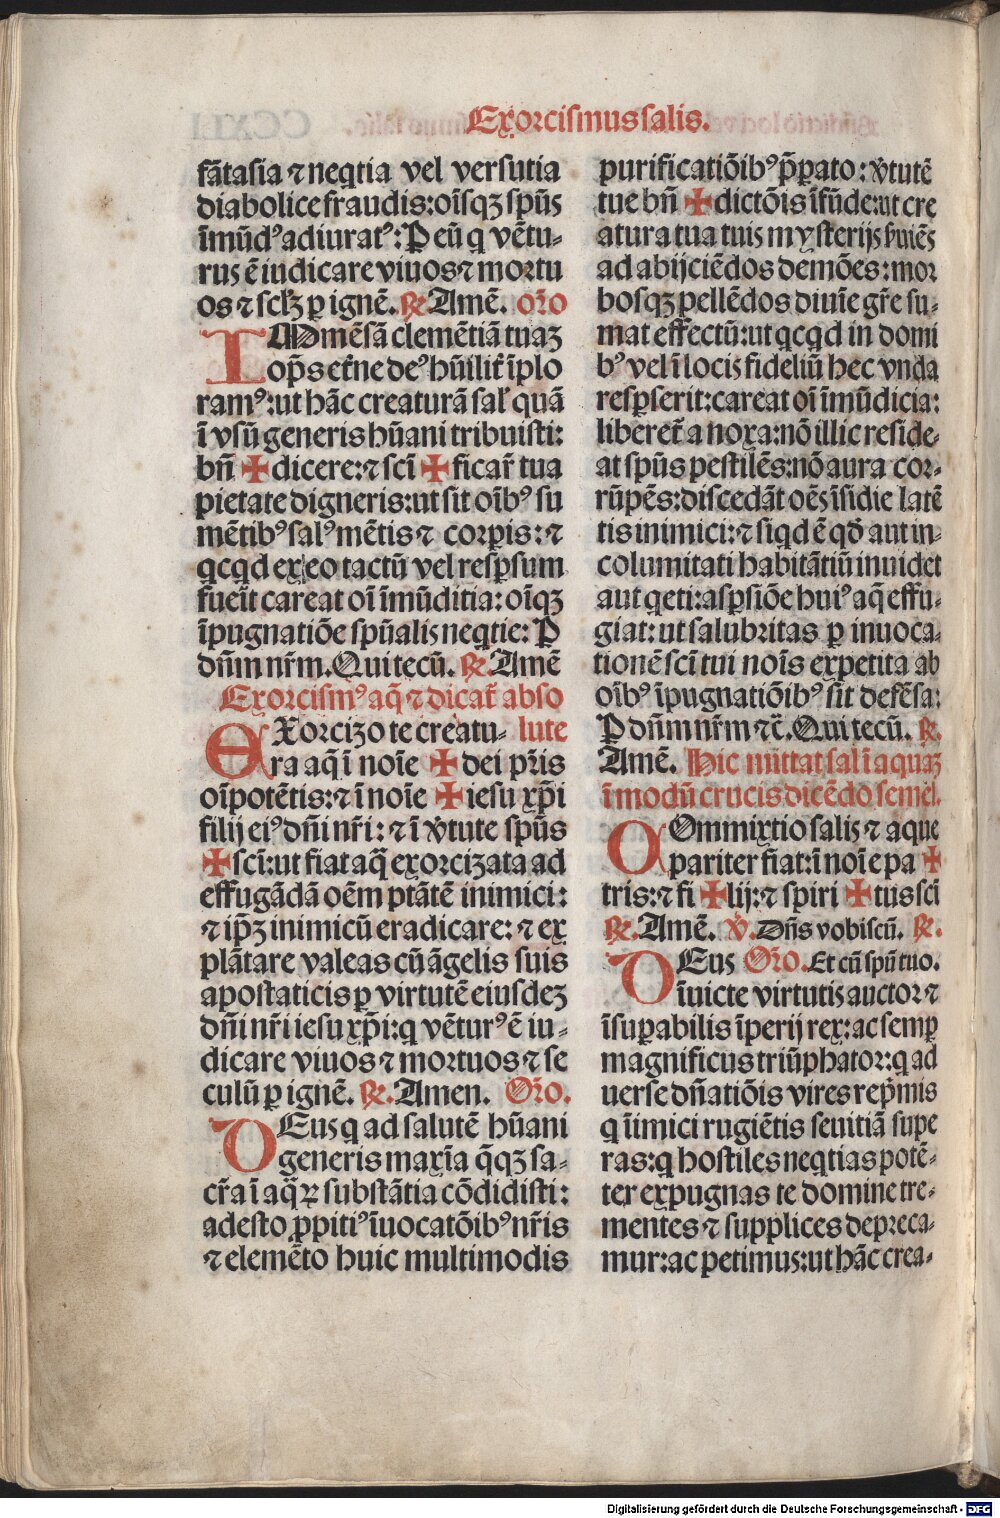 Exorcismus salis.
fātasia ⁊ neqtia vel versutia
diabolice fraudis: oīsqꝫ spūs
īmūdꝰ adiuratꝰ: P eū q vētu-
rus ē iudicare viuos ⁊ mortu
os ⁊ seclꝫ ꝑ ignē. ℞ Amē. oŕo
IMmēsā clemētiā tuaꝫ
oṕs et́ne deꝰ hūilit́ īplo
ramꝰ: ut hāc creaturā salꝭ quā
ī vsū generis hūani tribuisti:
bn̄ ✠ dicere: ⁊ scī ✠ ficar̄ tua
pietate digneris: ut sit oībꝰ su
mētibꝰ salꝰ mētis ⁊ corꝑis: ⁊
qcqd ex eo tactū vel resꝑsum
fueīt careat oī īmūditia: oīqꝫ
īpugnatiōe spūalis neqtie: P
dn̄m nr̄m. Qui tecū. ℞ Amē
Exorcismꝰ aq̄ ⁊ dicat́ abso
lute
EXorcizo te creatu-
ra aq̄ ī noīe ✠ dei pr̄is
oīpotētis: ⁊ ī noīe ✠ iesu xp̄i
filij eiꝰ dn̄i nr̄i: ⁊ ī v̄tute spūs
✠ scī: ut fiat aq̄ exorcizata ad
effugādā oēm ptātē inimici:
⁊ ip̄ꝫ inimicū eradicare: ⁊ ex
plātare valeas cū āgelis suis
apostaticis ꝑ virtutē eiusdeꝫ
dn̄i nr̄i iesu xp̄i: q vēturꝰ ē iu-
dicare viuos ⁊ mortuos ⁊ se
culū ꝑ ignē. ℞. Amen. Oŕo.
DEus q ad salutē hūani
generis maxīa q̄qꝫ sa-
cr̄a ī aq̄ꝝ substātia cōdidisti:
adesto ꝓpitiꝰ īuocatōibꝰ nr̄is
⁊ elemēto huic multimodis
purificatiōibꝰ p̄ꝑato: v̄tutē
tue bn̄ ✠ dictōis īfūde: ut cre
atura tua tuis mysterijs ẜuiēs
ad abijciēdos demōes: mor
bosqꝫ pellēdos diuīe gr̄e su-
mat effectū: ut qcqd in domi
bꝰ vel ī locis fideliū hec vnda
resꝑserit: careat oī īmūdicia:
liberet́ a noxa: nō illic reside-
at spūs pestilēs: nō aura cor-
rūpēs: discedāt oēs īsidie latē
tis inimici: ⁊ siqd ē qd̄ aut in-
columitati habitātiū inuidet
aut qeti: asꝑsiōe huiꝰ aq̄ effu-
giat: ut salubritas ꝑ inuoca-
tionē scī tui noīs expetita ab
oībꝰ īpugnatiōibꝰ sit defēsa:
P dn̄m nr̄m ⁊c̄. Qui tecū. ℞.
Amē. Hic mittat sal ī aquaꝫ
ī modū crucis dicēdo semel.
COmmixtio salis ⁊ aque
pariter fiat: ī noīe pa ✠
tris: ⁊ fi ✠ lij: ⁊ spiri ✠ tus scī
℞. Amē. ℣. Dn̄s vobiscū. ℞.
DEus Oŕo. Et cū spū tuo.
īuicte virtutis auctor ⁊
īsuꝑabilis īperij rex: ac semꝑ
magnificus triūphator: q ad
uerse dn̄atiōis vires rep̄mis
q īimici rugiētis seuitiā supe
ras: q hostiles neqtias potē-
ter expugnas te domine tre-
mentes ⁊ supplices depreca-
mur: ac petimus: ut hāc crea-
Digitalisierung gefördert durch die Deutsche Forschungsgemeinschaft - DFG